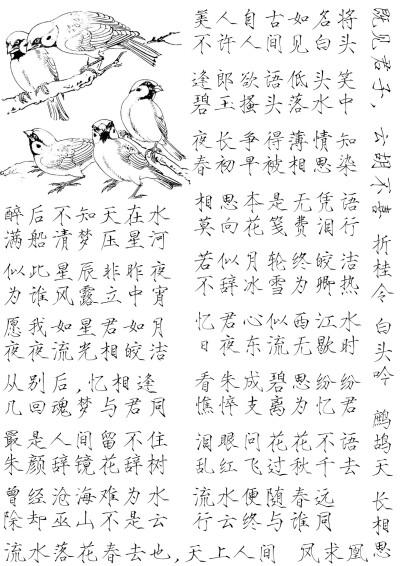 美人自古如名将
不许人间见白头
逢郎欲语低头笑
碧玉搔头落水中
夜长争得薄情知
春初早被相思染
相思本是无凭语
莫向花笺费泪行
若似月轮终皎洁
不辞冰雪为卿热
忆君心似西江水
日夜东流无歇时
看朱成碧思纷纷
憔悴支离为忆君
泪眼问花花不语
乱红飞过秋千去
流水便随春远
行云终与谁同
醉后不知天在水
满船清梦压星河
似此星辰非昨夜
为谁风露立中宵
愿我如星君如月
夜夜流光相皎洁
从别后,忆相逢
几回魂梦与君同
最是人间留不住
朱颜辞镜花辞树
曾经沧海难为水
除却巫山不是云
流水落花春去也,天上人间 凤求凰
既见君子,云胡不喜 折桂令 白头吟 鹧鸪天 长相思